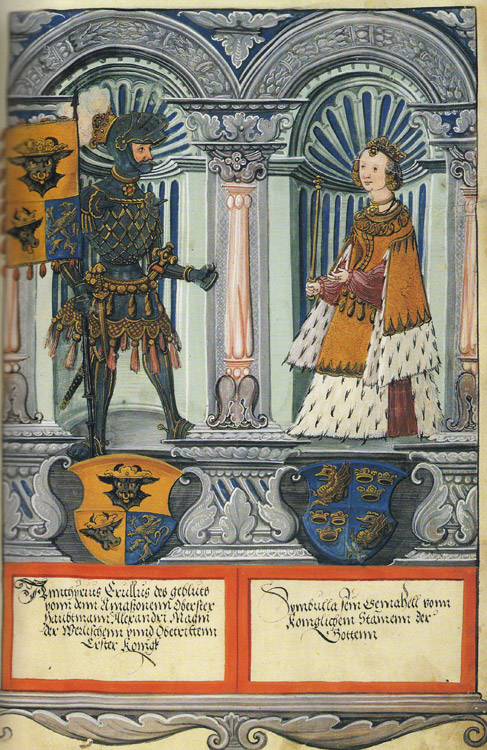 Anthyrius Crullus des gebluets
vonn denn Amassonenn Oberster
Haubtmann Alexandri Magni
der Werlischenn vnnd Obetrittenn
Erster Konigk
Symbulla sein Gemahell vonn
Koniglichem Stammen der
Gottenn